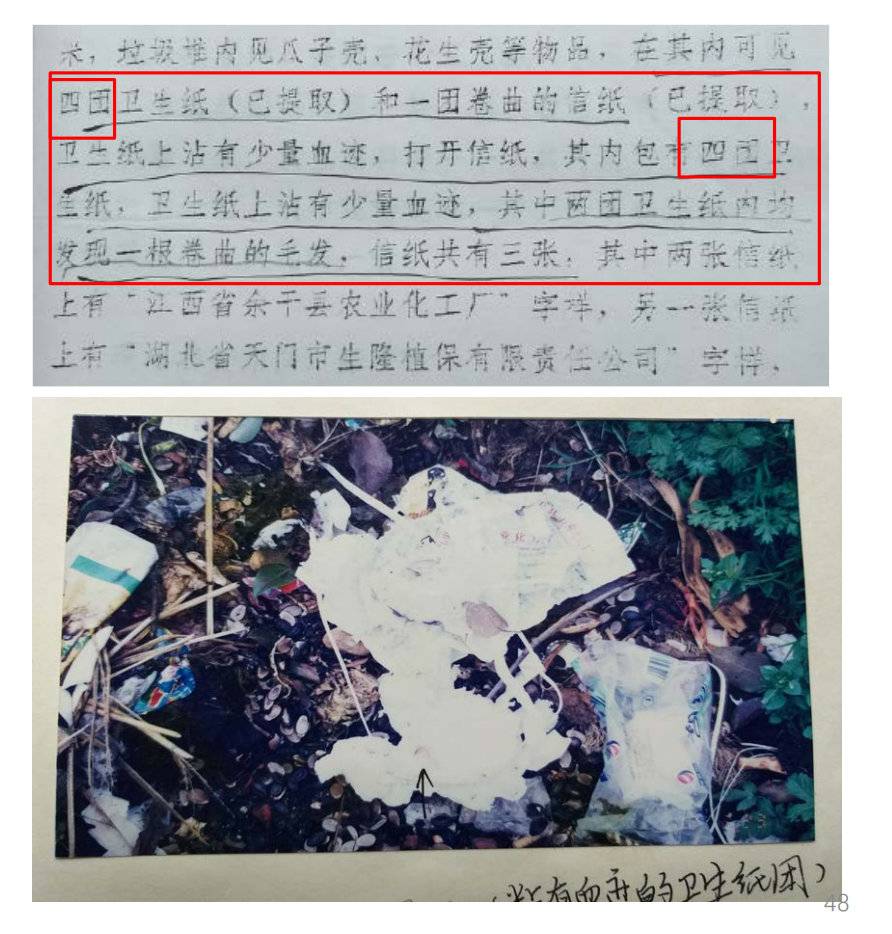 米，垃圾堆内见瓜子壳、花生壳等物品，在其内可见
四团卫生纸（已提取）和一团卷曲的信纸（已提取），
卫生纸上沾有少量血迹，打开信纸，其内包有四团卫
生纸，卫生纸上沾有少量血迹，其中两团卫生纸内均
发现一根卷曲的毛发，信纸共有三张，其中两张信纸
上有“江西省余干县农业化工厂”字样，另一张信纸
上有“湖北省天门市生隆植保有限责任公司”字样，
（粘有血迹的卫生纸团）
48